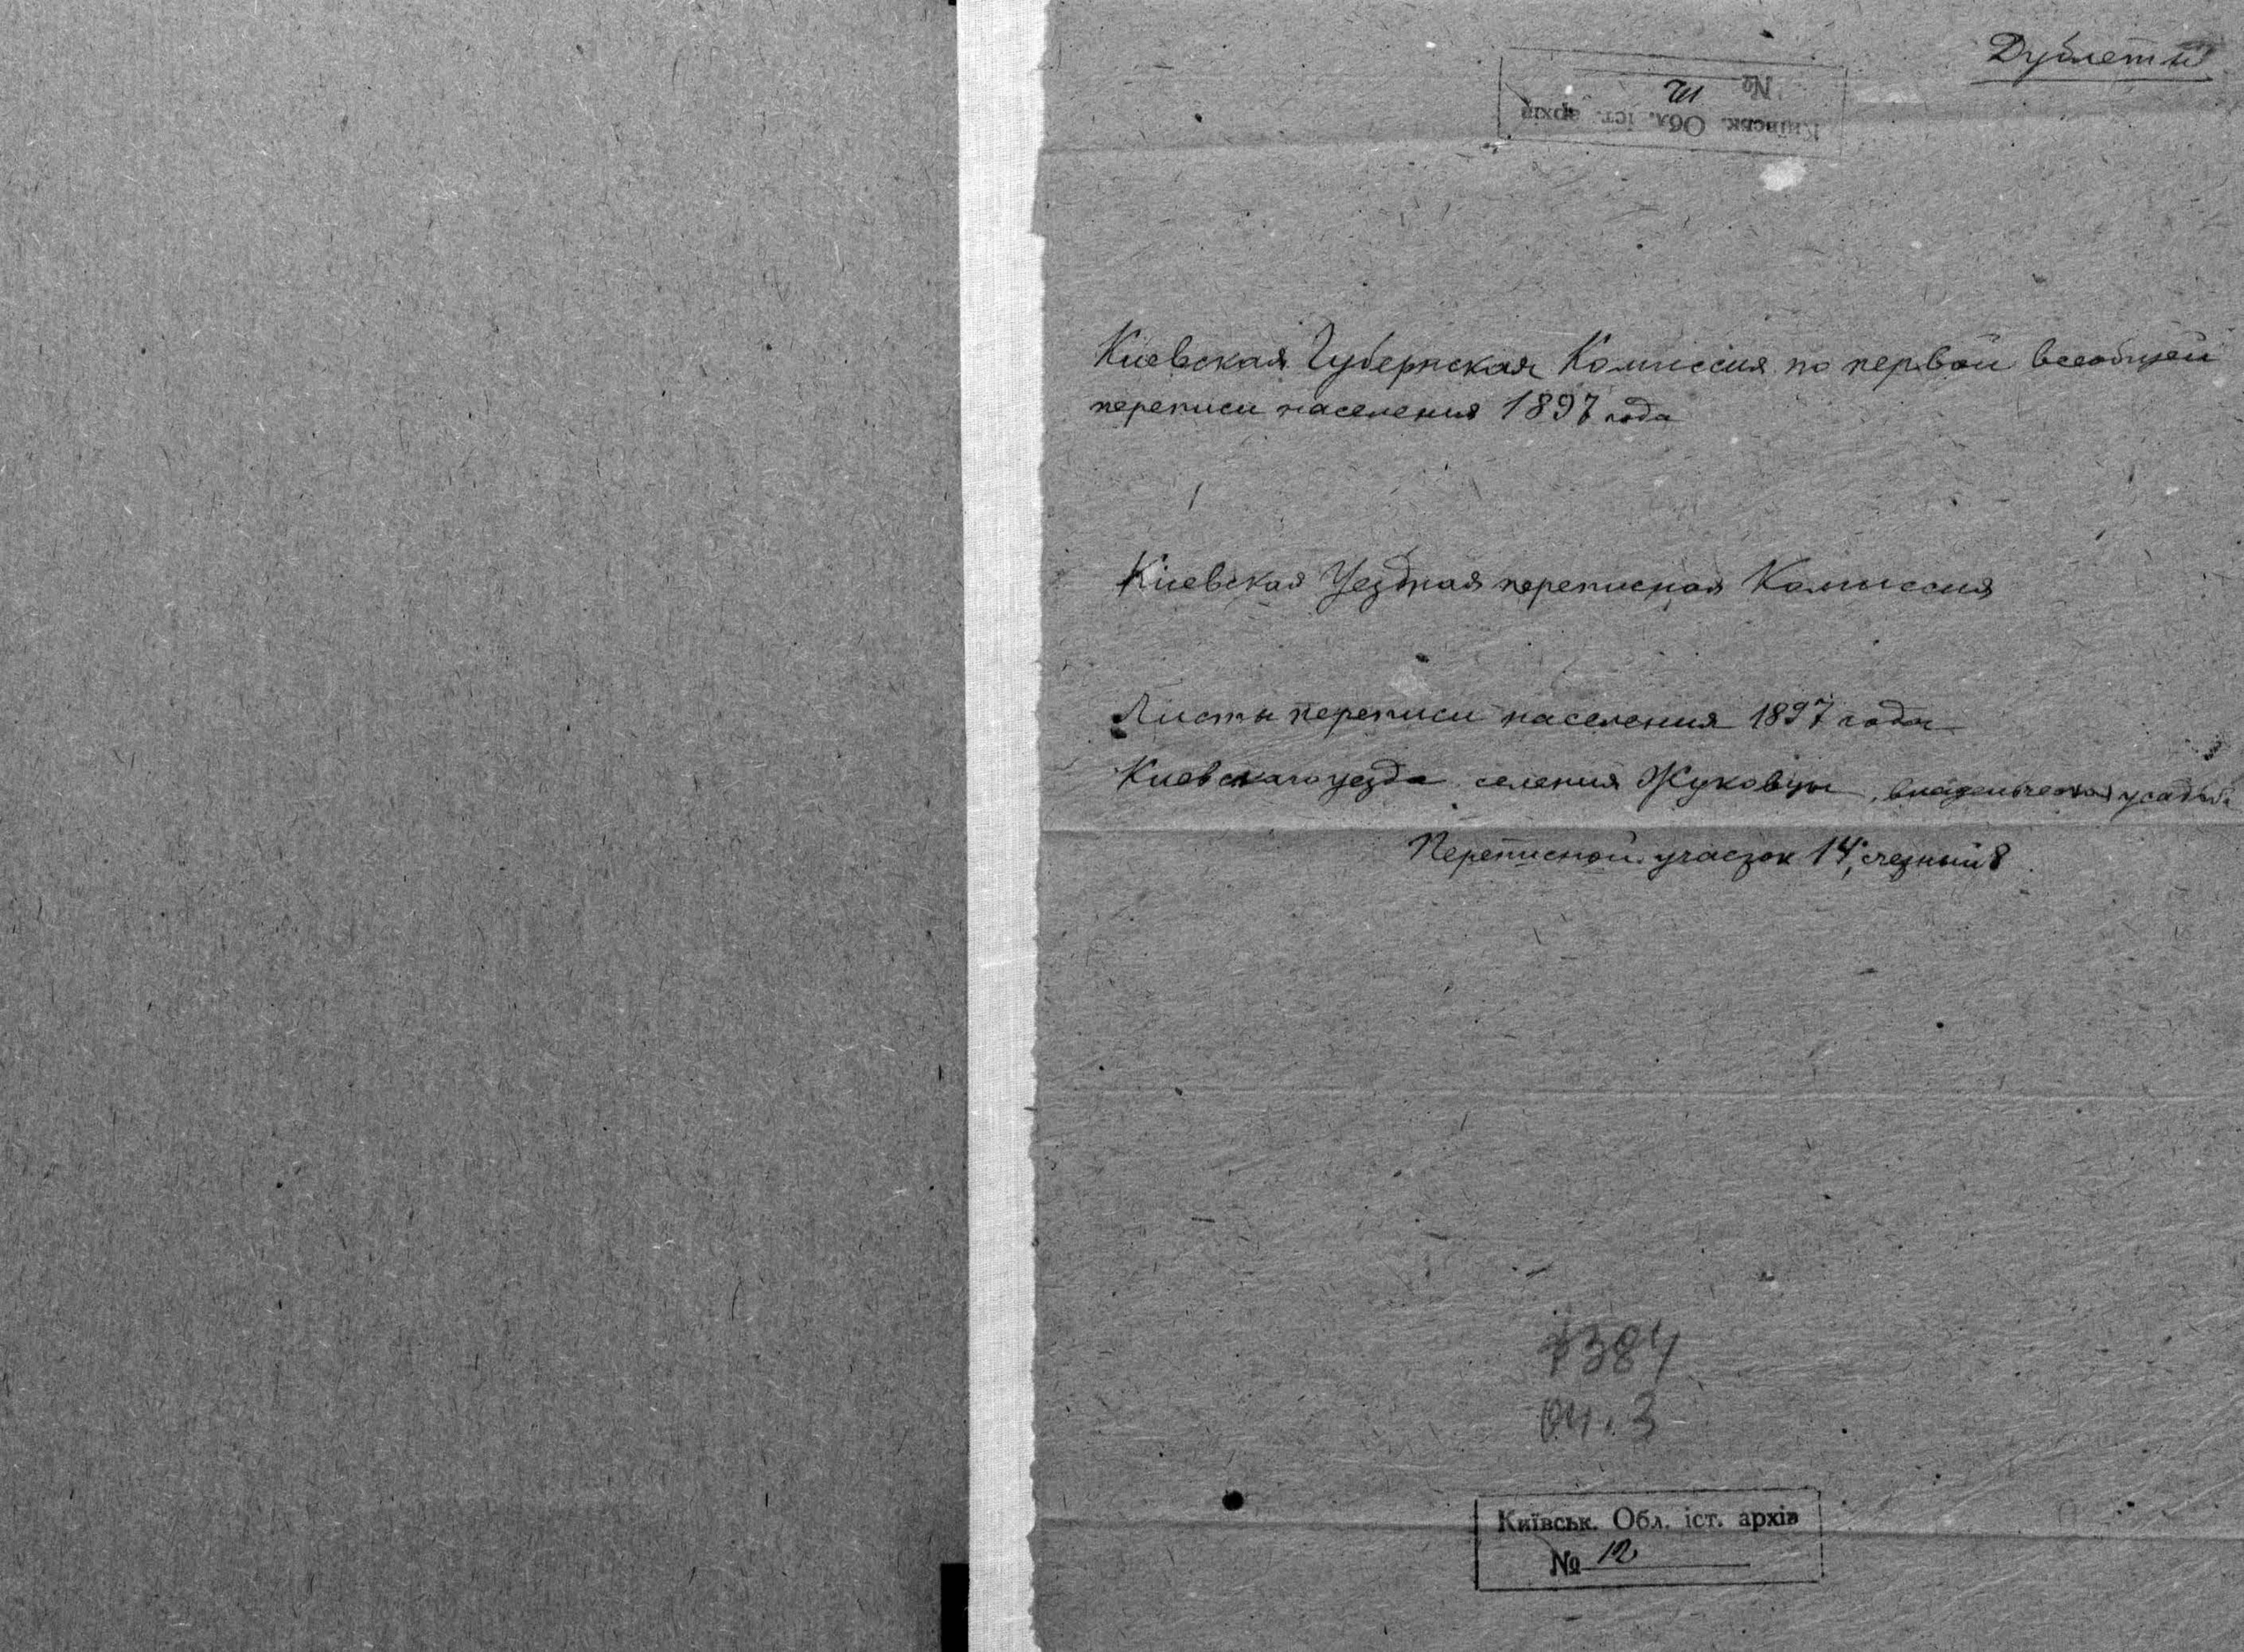 Дублеты
Київськ. Обл. іст. архів
№
Киевская Губернская Комиссия по первой всеобщей
переписи населения 1897 года
Киевская Уездная переписная Комиссия
Листы переписи населения 1897 года
Киевского уезда селения Жуковцы, владельческая усадьба
Переписной участок 14, счетный 8
384
оп. 3
Київськ. Обл. іст. архів
№ 12